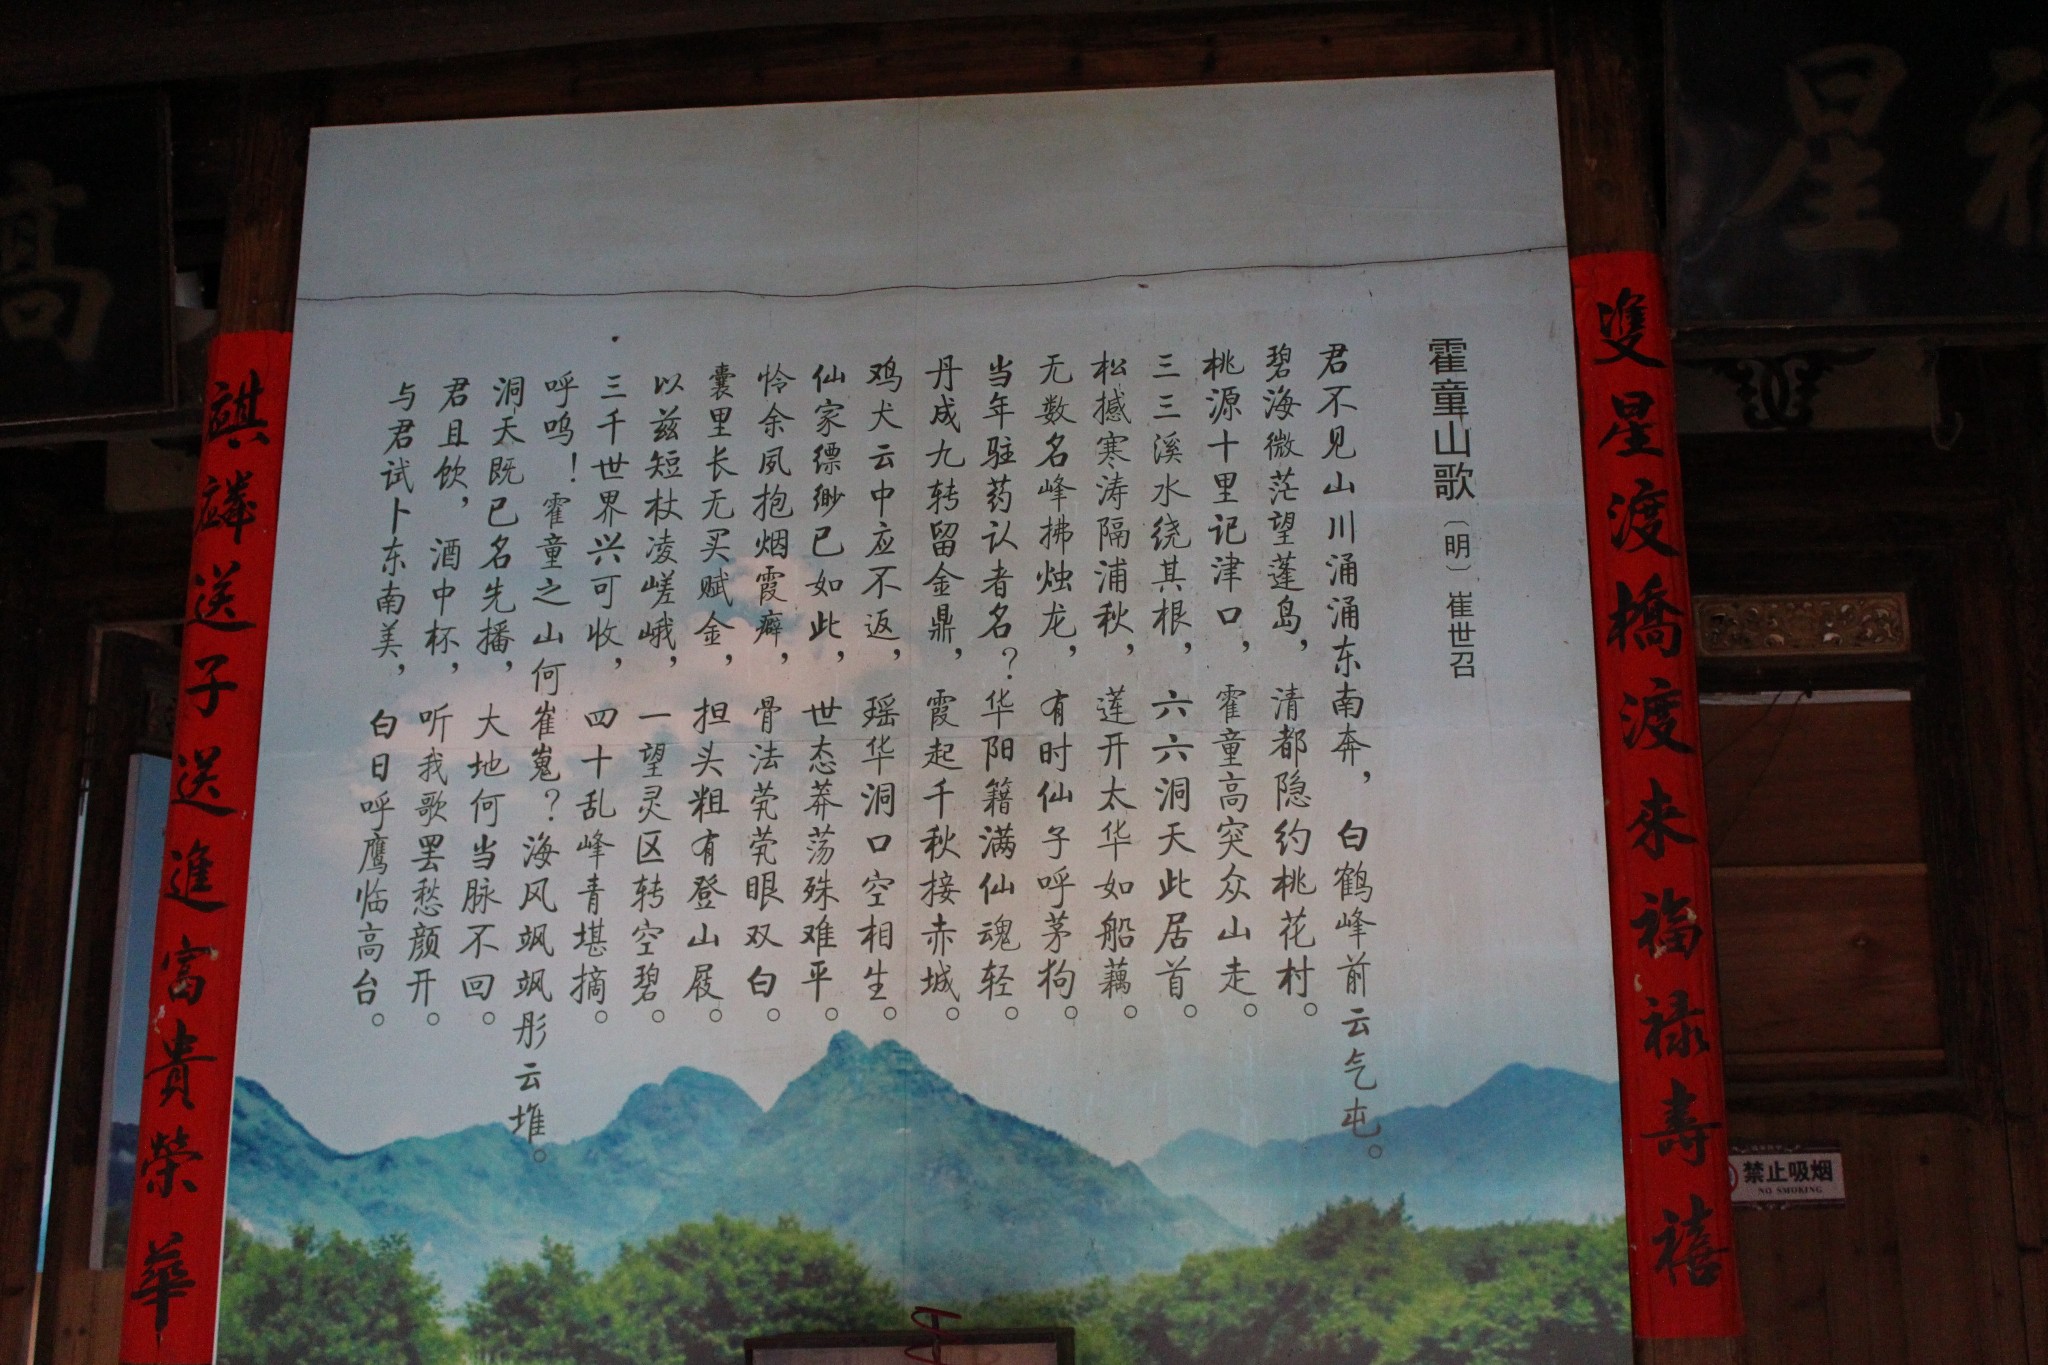 霍童山歌〔明〕崔世召
君不见山川涌涌东南奔，白鹤峰前云气屯。
碧海微茫望蓬岛，清都隐约桃花村。
桃源十里记津口，霍童高突众山走。
三三溪水绕其根，六六洞天此居首。
松撼寒涛隔浦秋，莲开太华如船藕。
无数名峰拂烛龙，有时仙子呼茅狗。
当年驻药认者名？华阳籍满仙魂轻。
丹成九转留金鼎，霞起千秋接赤城。
鸡犬云中应不返，瑶华洞口空相生。
仙家缥缈已如此，世态莽荡殊难平。
怜余夙抱烟霞癖，骨法茕茕眼双白。
囊里长无买赋金，担头粗有登山屐。
以兹短杖凌嵯峨，一望灵区转空碧。
三千世界兴可收，四十乱峰青堪摘。
呼呜！霍童之山何崔嵬？海风飒飒彤云堆。
洞天既已名先播，大地何当脉不回。
君且饮，酒中杯，听我歌罢愁颜开。
与君试卜东南美，白日呼鹰临高台。
雙星渡橋渡来福禄壽禧
麒麟送子送進富貴榮華
星
高
禁止吸烟
NO SMOKING